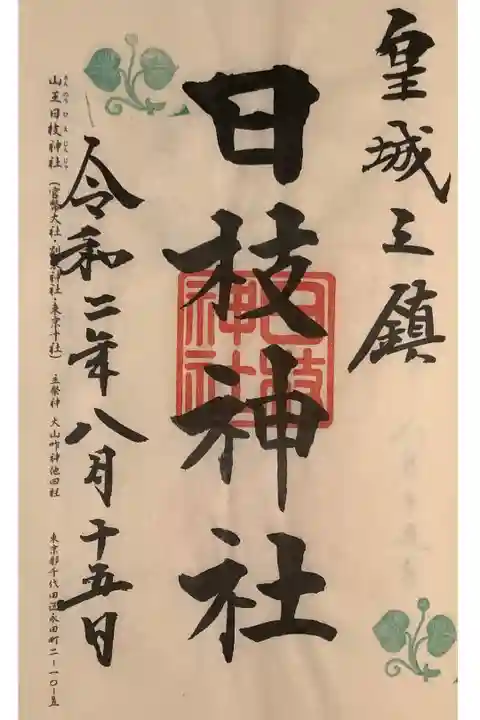 皇城之鎮
日枝神社
日枝神社
令和二年八月十五日
さんのうひえじんじゃ
山王日枝神社（官幣大社・別表神社・東京十社） 主祭神 大山咋神他四柱 東京都千代田区永田町二-一〇-五